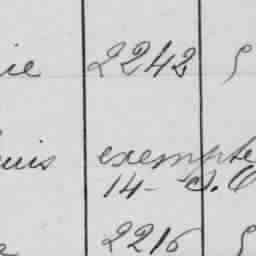 ie 2242
uis exempte
14 - S.
2216